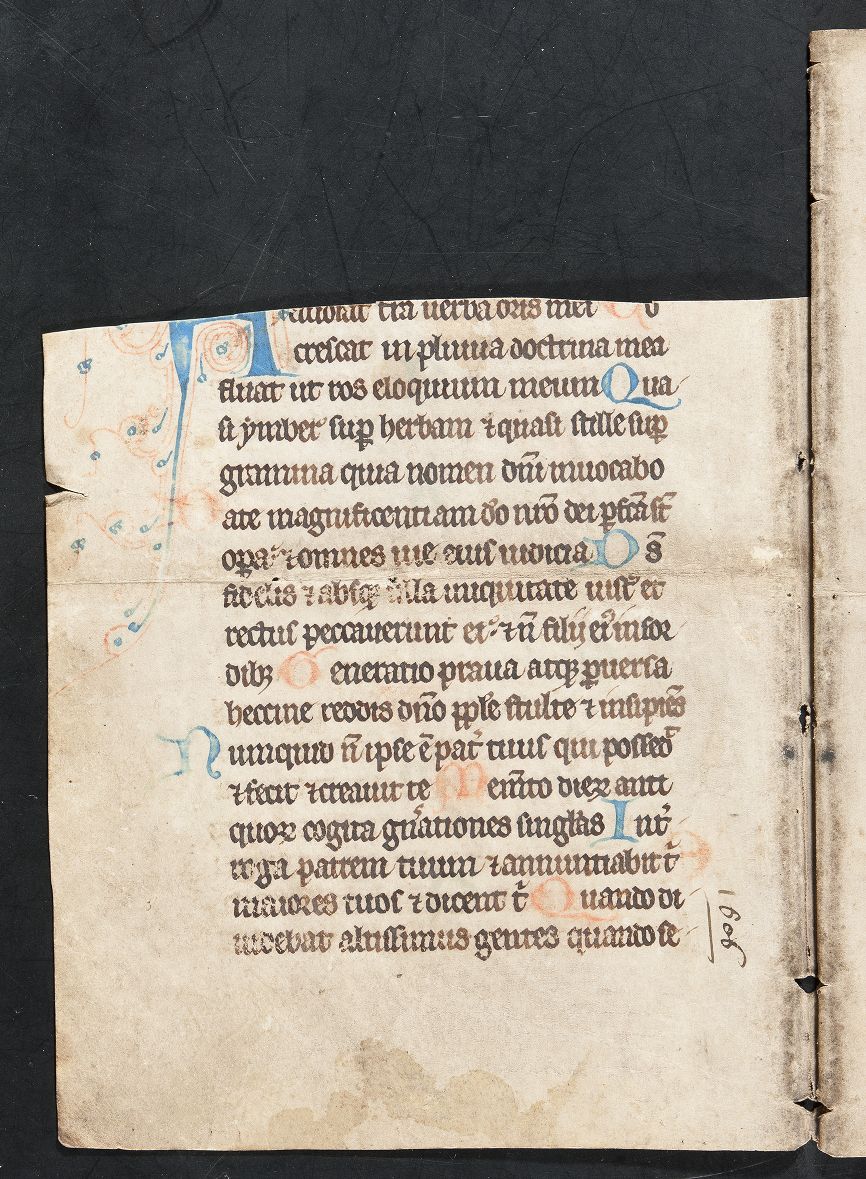 A tra uerba oris mei Co
crescat in pluuia doctrina mea
fluat ut ros eloquium meum Qua
si ymber sup̱ herbam ⁊ quasi stille sup̱
gramina quia nomen dn̄i inuocabo
D ate magnificentiam dō nr̄o dei ꝑfc̄a st̄
oꝑa ⁊ omnes uie eius iudicia D s̄
fidelis ⁊ absqꝫ ulla iniquitate iust᷒ et
rectus peccauerunt ei ⁊ n̄ filij ei᷒ in sor
dibꝫ G eneratio praua atqꝫ ꝑuersa
heccine reddis dn̄o pple stulte ⁊ insipiēs
N umquid n̄ ipse ē pat̉ tuus qui possed̉
⁊ fecit ⁊ creauit te M em̄to dieꝝ anti
quoꝝ cogita gn̉ationes singl̄as I nt̉
roga patrem tuum ⁊ annuntiabit t̉
maiores tuos ⁊ dicent t̉ Q uando di
uidebat altissimus gentes quando se
1609